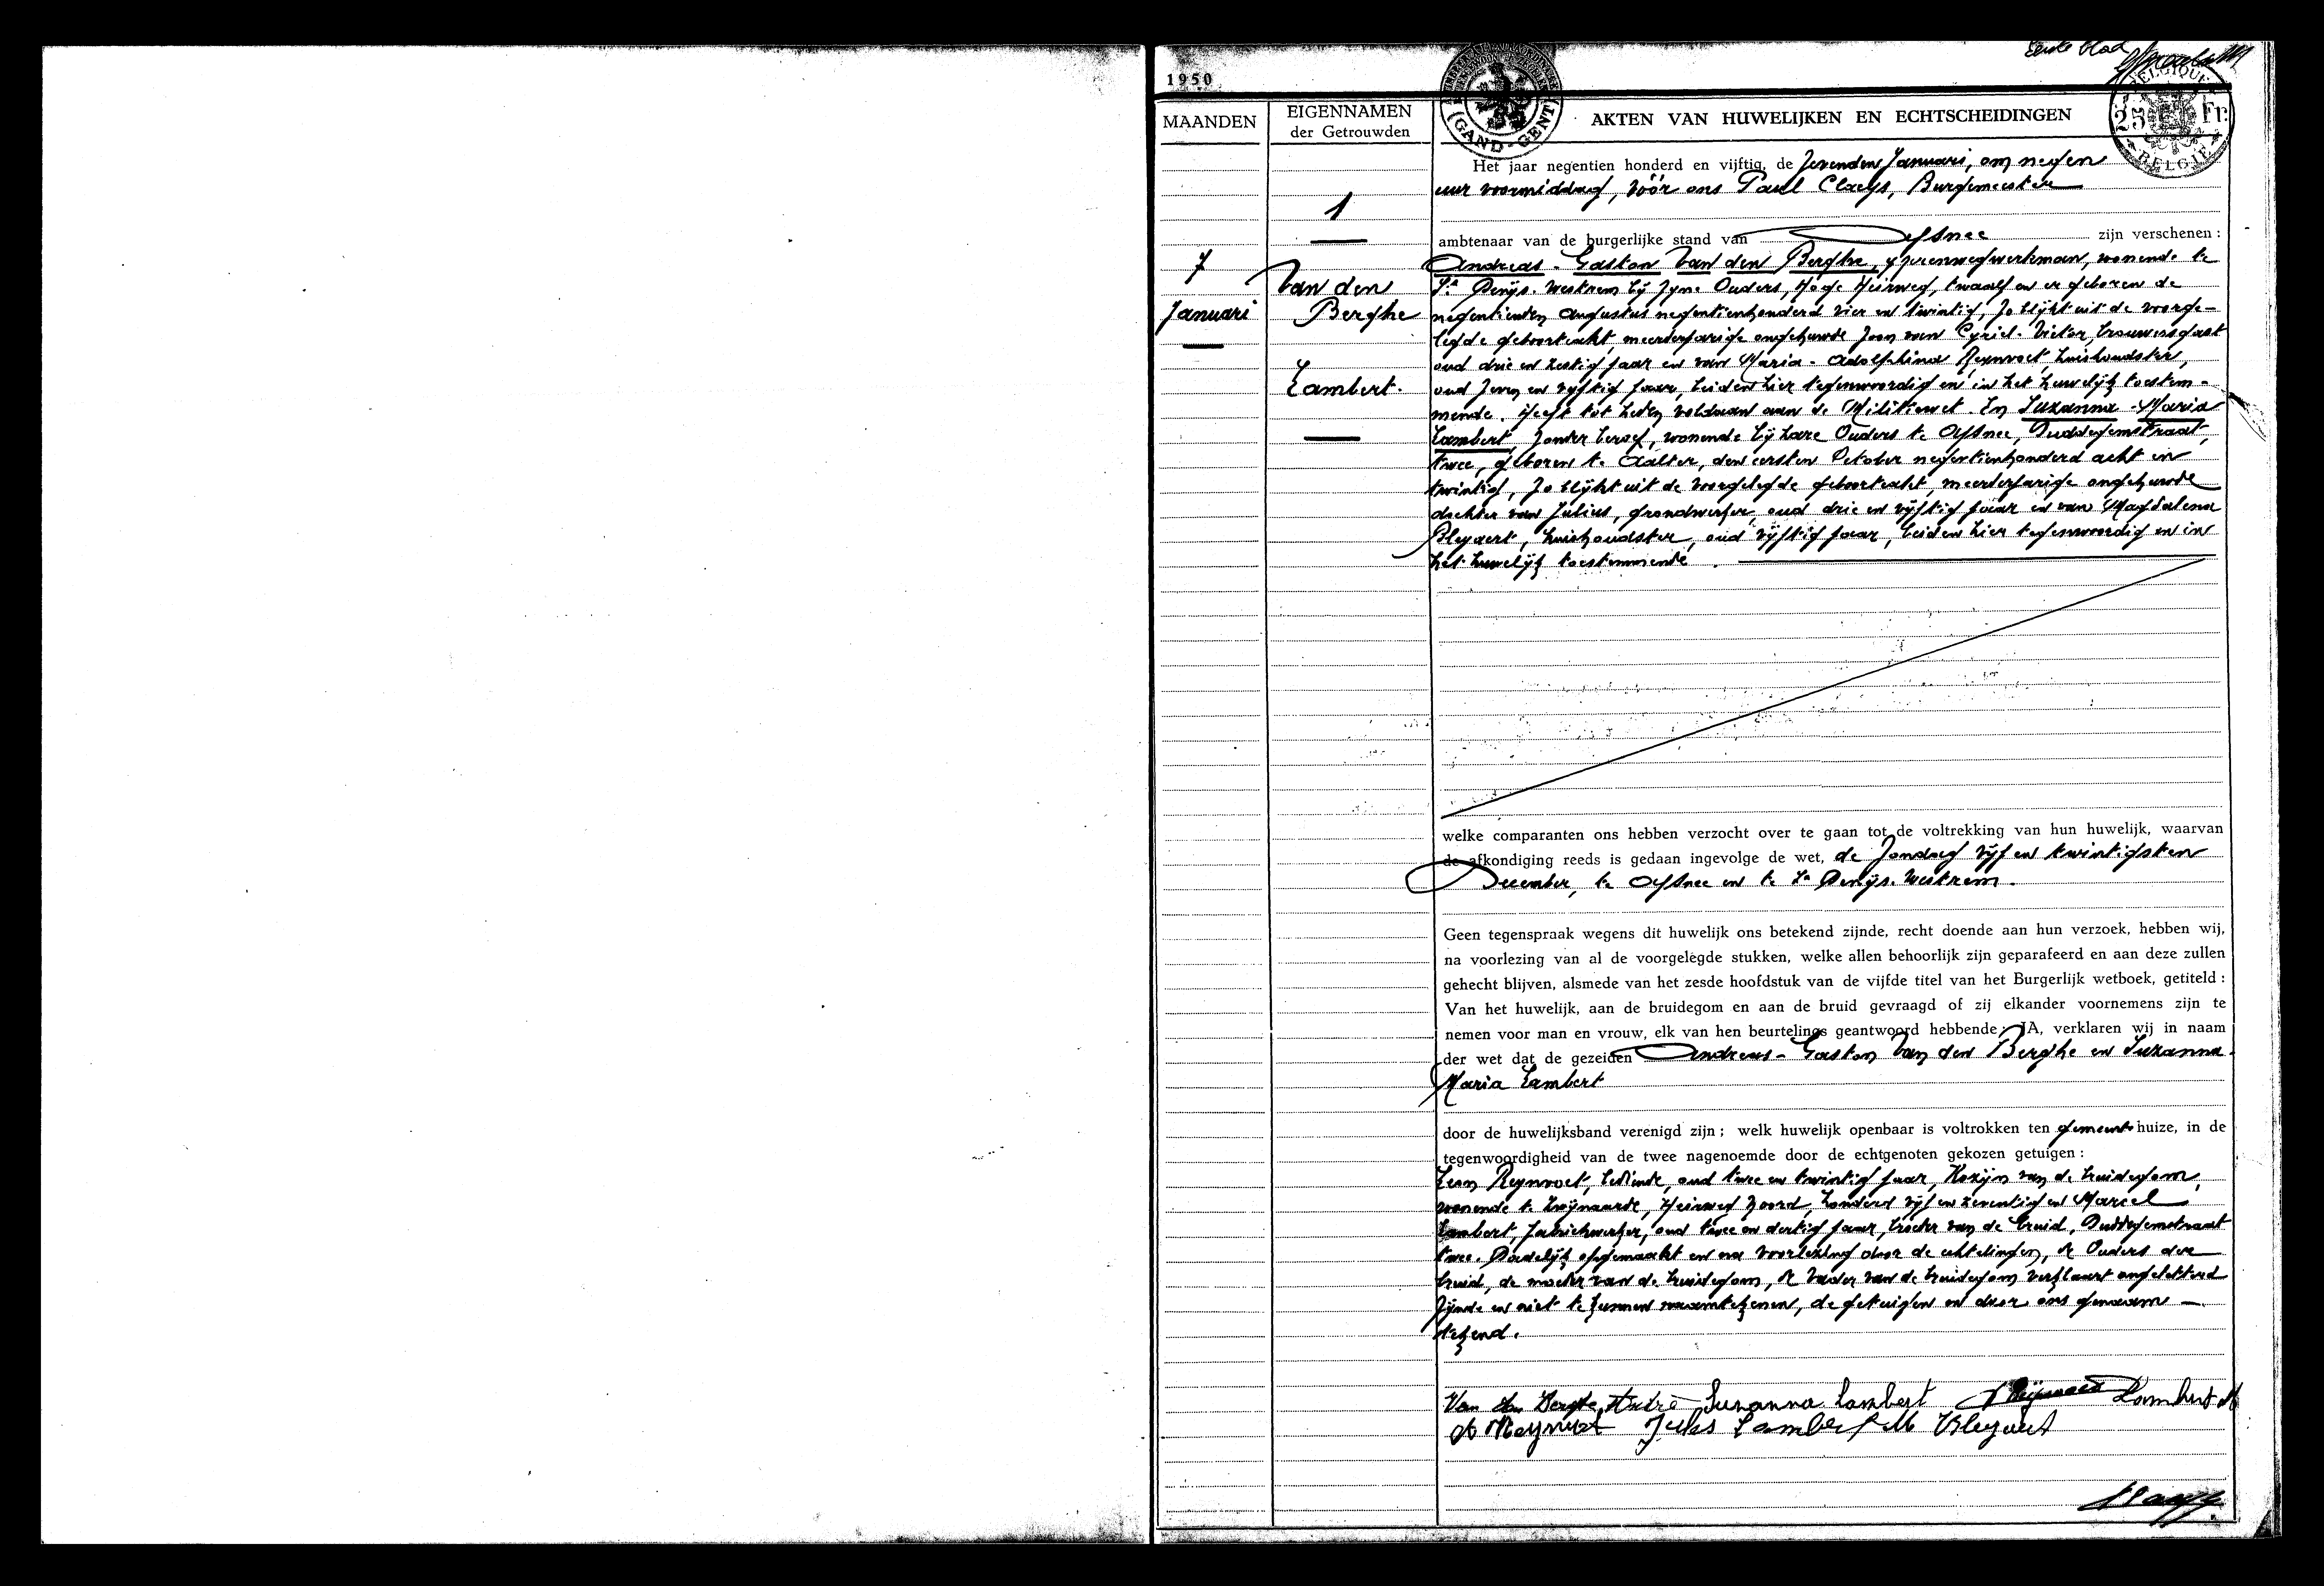 Eerste blad
1950
MAANDEN
EIGENNAMEN
der Getrouwden
AKTEN VAN HUWELIJKEN EN ECHTSCHEIDINGEN
GAND - GENT
BELGIQUE
25 Fr.
BELGIË
1
7
Januari
Van den
Berghe
Lambert.
Het jaar negentien honderd en vijftig, de zevenden Januari, om negen
uur voormiddag, vóór ons Paul Claeys, Burgemeester
ambtenaar van de burgerlijke stand van Afsnee zijn verschenen :
Andreas - Gaston Van den Berghe, ijzerenwegwerkman, wonende te
St Denijs-Westrem bij zyne Ouders, Hoge Heirweg, twaalf en er geboren de
negentienden Augustus negentienhonderd vier en twintig, zo blijkt uit de voorge-
legde geboorteakt, meerderjarige ongehuwde zoon van Cyriel-Victor, brouwersgast
oud drie en zestig jaar en van Maria-Adolphina Reynvoet, huishoudster,
oud zeven en vijftig jaar, beiden hier tegenwoordig en in het huwelijk toestem-
mende. Heeft tot heden voldaan aan de Militiewet. En Suzanna-Maria
Lambert, zonder beroep, wonende bij hare Ouders te Afsnee, Duddegemstraat,
twee, geboren te Aalter, den eersten October negentienhonderd acht en
twintig, zo blijkt uit de voorgelegde geboorteakt, meerderjarige ongehuwde
dochter van Julius, grondwerker, oud drie en vijftig jaar en van Magdalena
Bleyaert, huishoudster, oud vijftig jaar, beiden hier tegenwoordig en in
het huwelijk toestemmende.
welke comparanten ons hebben verzocht over te gaan tot de voltrekking van hun huwelijk, waarvan
de afkondiging reeds is gedaan ingevolge de wet, de Zondag vijf en twintigsten
December, te Afsnee en te St Denijs-Westrem.
Geen tegenspraak wegens dit huwelijk ons betekend zijnde, recht doende aan hun verzoek, hebben wij,
na voorlezing van al de voorgelegde stukken, welke allen behoorlijk zijn geparafeerd en aan deze zullen
gehecht blijven, alsmede van het zesde hoofdstuk van de vijfde titel van het Burgerlijk wetboek, getiteld :
Van het huwelijk, aan de bruidegom en aan de bruid gevraagd of zij elkander voornemens zijn te
nemen voor man en vrouw, elk van hen beurtelings geantwoord hebbende: JA, verklaren wij in naam
der wet dat de gezeiden Andreas-Gaston Van den Berghe en Suzanna-
Maria Lambert
door de huwelijksband verenigd zijn ; welk huwelijk openbaar is voltrokken ten gemeentehuize, in de
tegenwoordigheid van de twee nagenoemde door de echtgenoten gekozen getuigen :
Leon Reynvoet, bediende, oud twee en twintig jaar, Kozijn van de bruidegom,
wonende te Zwijnaarde, Heirweg Noord, honderd vijf en zeventig en Marcel
Lambert, fabriekwerker, oud twee en dertig jaar, broeder van de bruid, Duddegemstraat
twee. Dadelijk opgemaakt en na voorlezing door de echtelingen, de Ouders der
bruid, de moeder van de bruidegom, de Vader van de bruidegom verklaart ongeletterd
zijnde en niet te kunnen naamtekenen, de getuigen en door ons genaam-
tekend.
Van den Berghe André Suzanna Lambert L Reijnvoet Lambert M
A Reynvoet Jules Lambert M Bleyaert